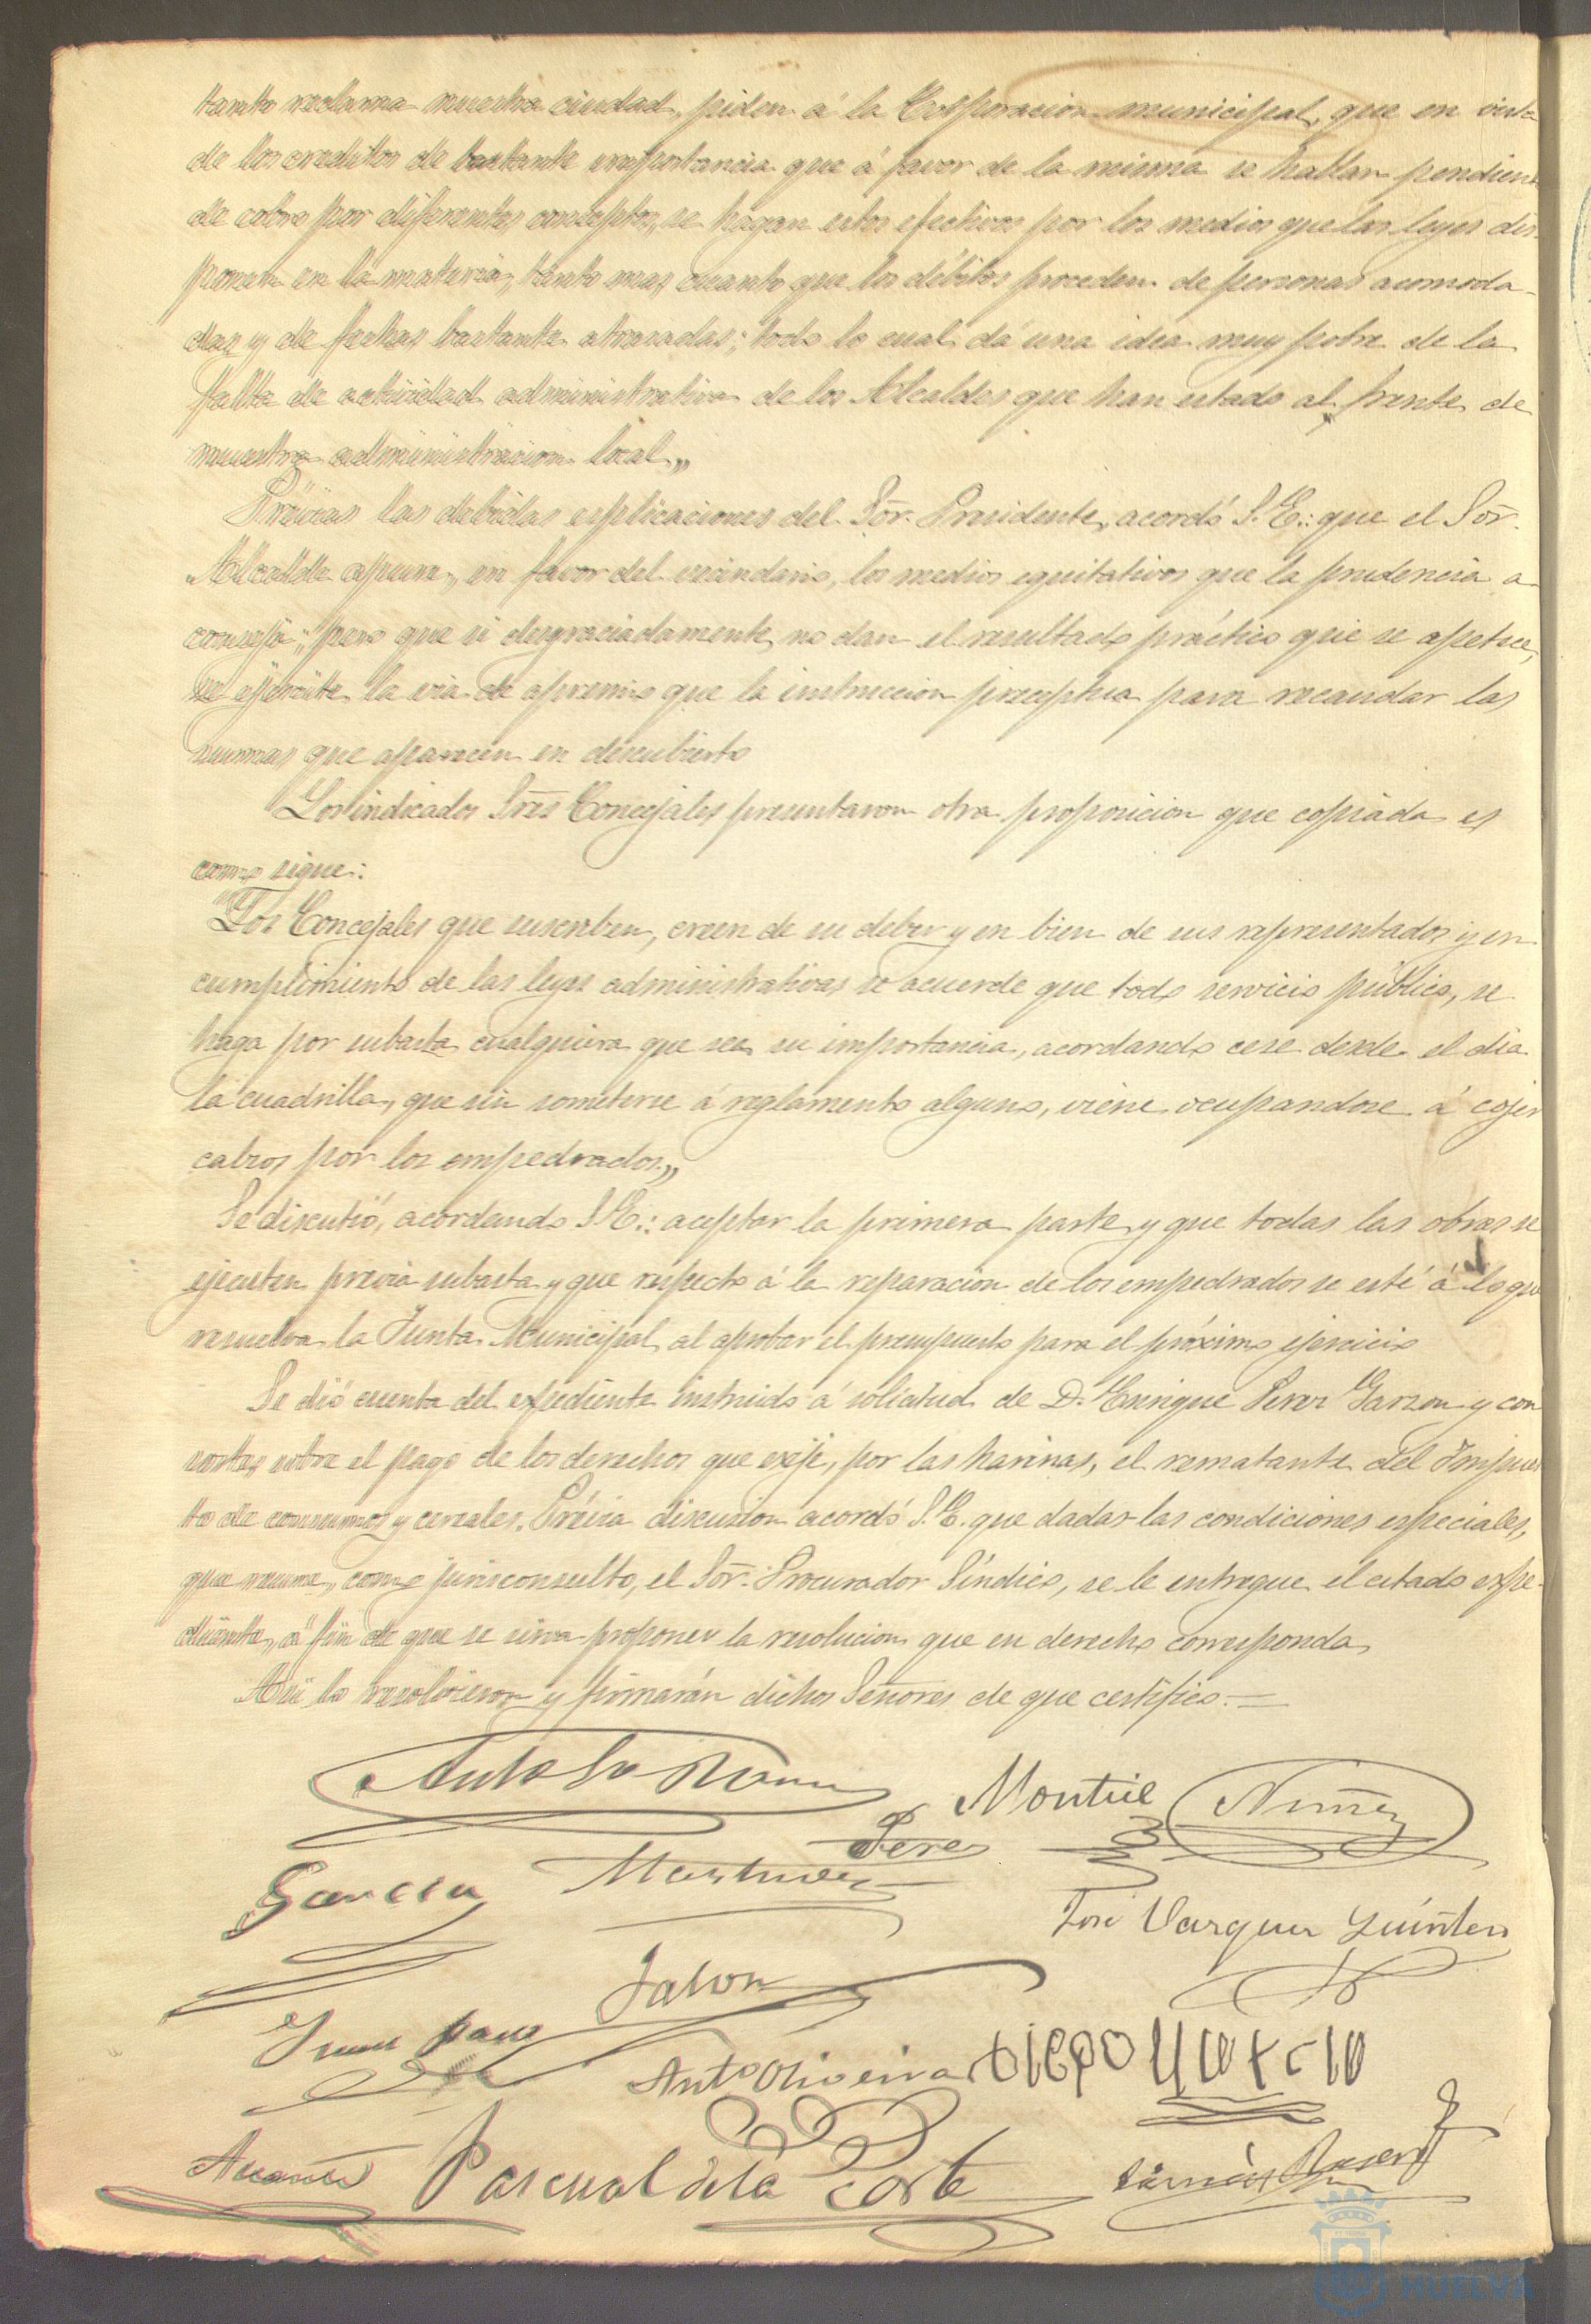 tanto reclama nuestra ciudad, piden á la Corporacion municipal, que en vista
de los creditos de bastante importancia que á favor de la misma se hallan pendien
de cobro por diferentes conceptos, se hagan estos efectivos por los medios que las leyes dis-
ponen en la materia, tanto mas, cuanto que los débitos proceden de personas acomoda-
das y de fechas bastante atrasadas; todo lo cual dá una idea muy pobre de la
falta de actividad administrativa de los Alcaldes que han estado al frente de
nuestra administracion local„
Prévias las debidas esplicaciones del Sor. Presidente, acordó S.E.: que el Sor.
Alcalde apure, en favor del vecindario, los medios equitativos que la prudencia a-
conseja; pero que si desgraciadamente, no dan el resultado práctico que se apetece,
se ejercite la via de apremio que la instruccion preceptua para recaudar las
sumas que aparecen en descubierto
Los indicados Sres Concejales presentaron otra proposicion que copiada es
como sigue:
"Los Concejales que suscriben, creen de su deber y en bien de sus representados y en
cumplimiento de las leyes administrativas se acuerde que todo servicio público, se
haga por subasta cualquiera que sea su importancia, acordando cese desde el dia
la cuadrilla, que sin someterse á reglamento alguno, viene ocupandose á cojer
calzos por los empedrados„
Se discutió, acordando S.E.: aceptar la primera parte y que todas las obras se
ejecuten prévia subasta y que respecto á la reparacion de los empedrados se esté á lo que
resuelva la Junta Municipal, al aprobar el presupuesto para el próximo ejercicio
Se dió cuenta del expediente instruido á solicitud de D. Enrique Perez Garzon y con
sortes, sobre el pago de los derechos que exije, por las harinas, el rematante del Impues
to de consumos y cereales. Prévia discusion acordó S.E. que dadas las condiciones especiales,
que reune, como jurisconsulto, el Sor. Procurador Síndico, se le entregue el citado espe-
diente, á fin de que se sirva proponer la resolucion que en derecho corresponda,
Asi lo resolvieron y firmarán dichos Señores de que certifico.=
Montiel
Nuñez
Perez
Garcia
Martinez
José Vazquez
Jalon
Anto Oliveira
Diego Garcia
Pascual de la Corte
HUELVA